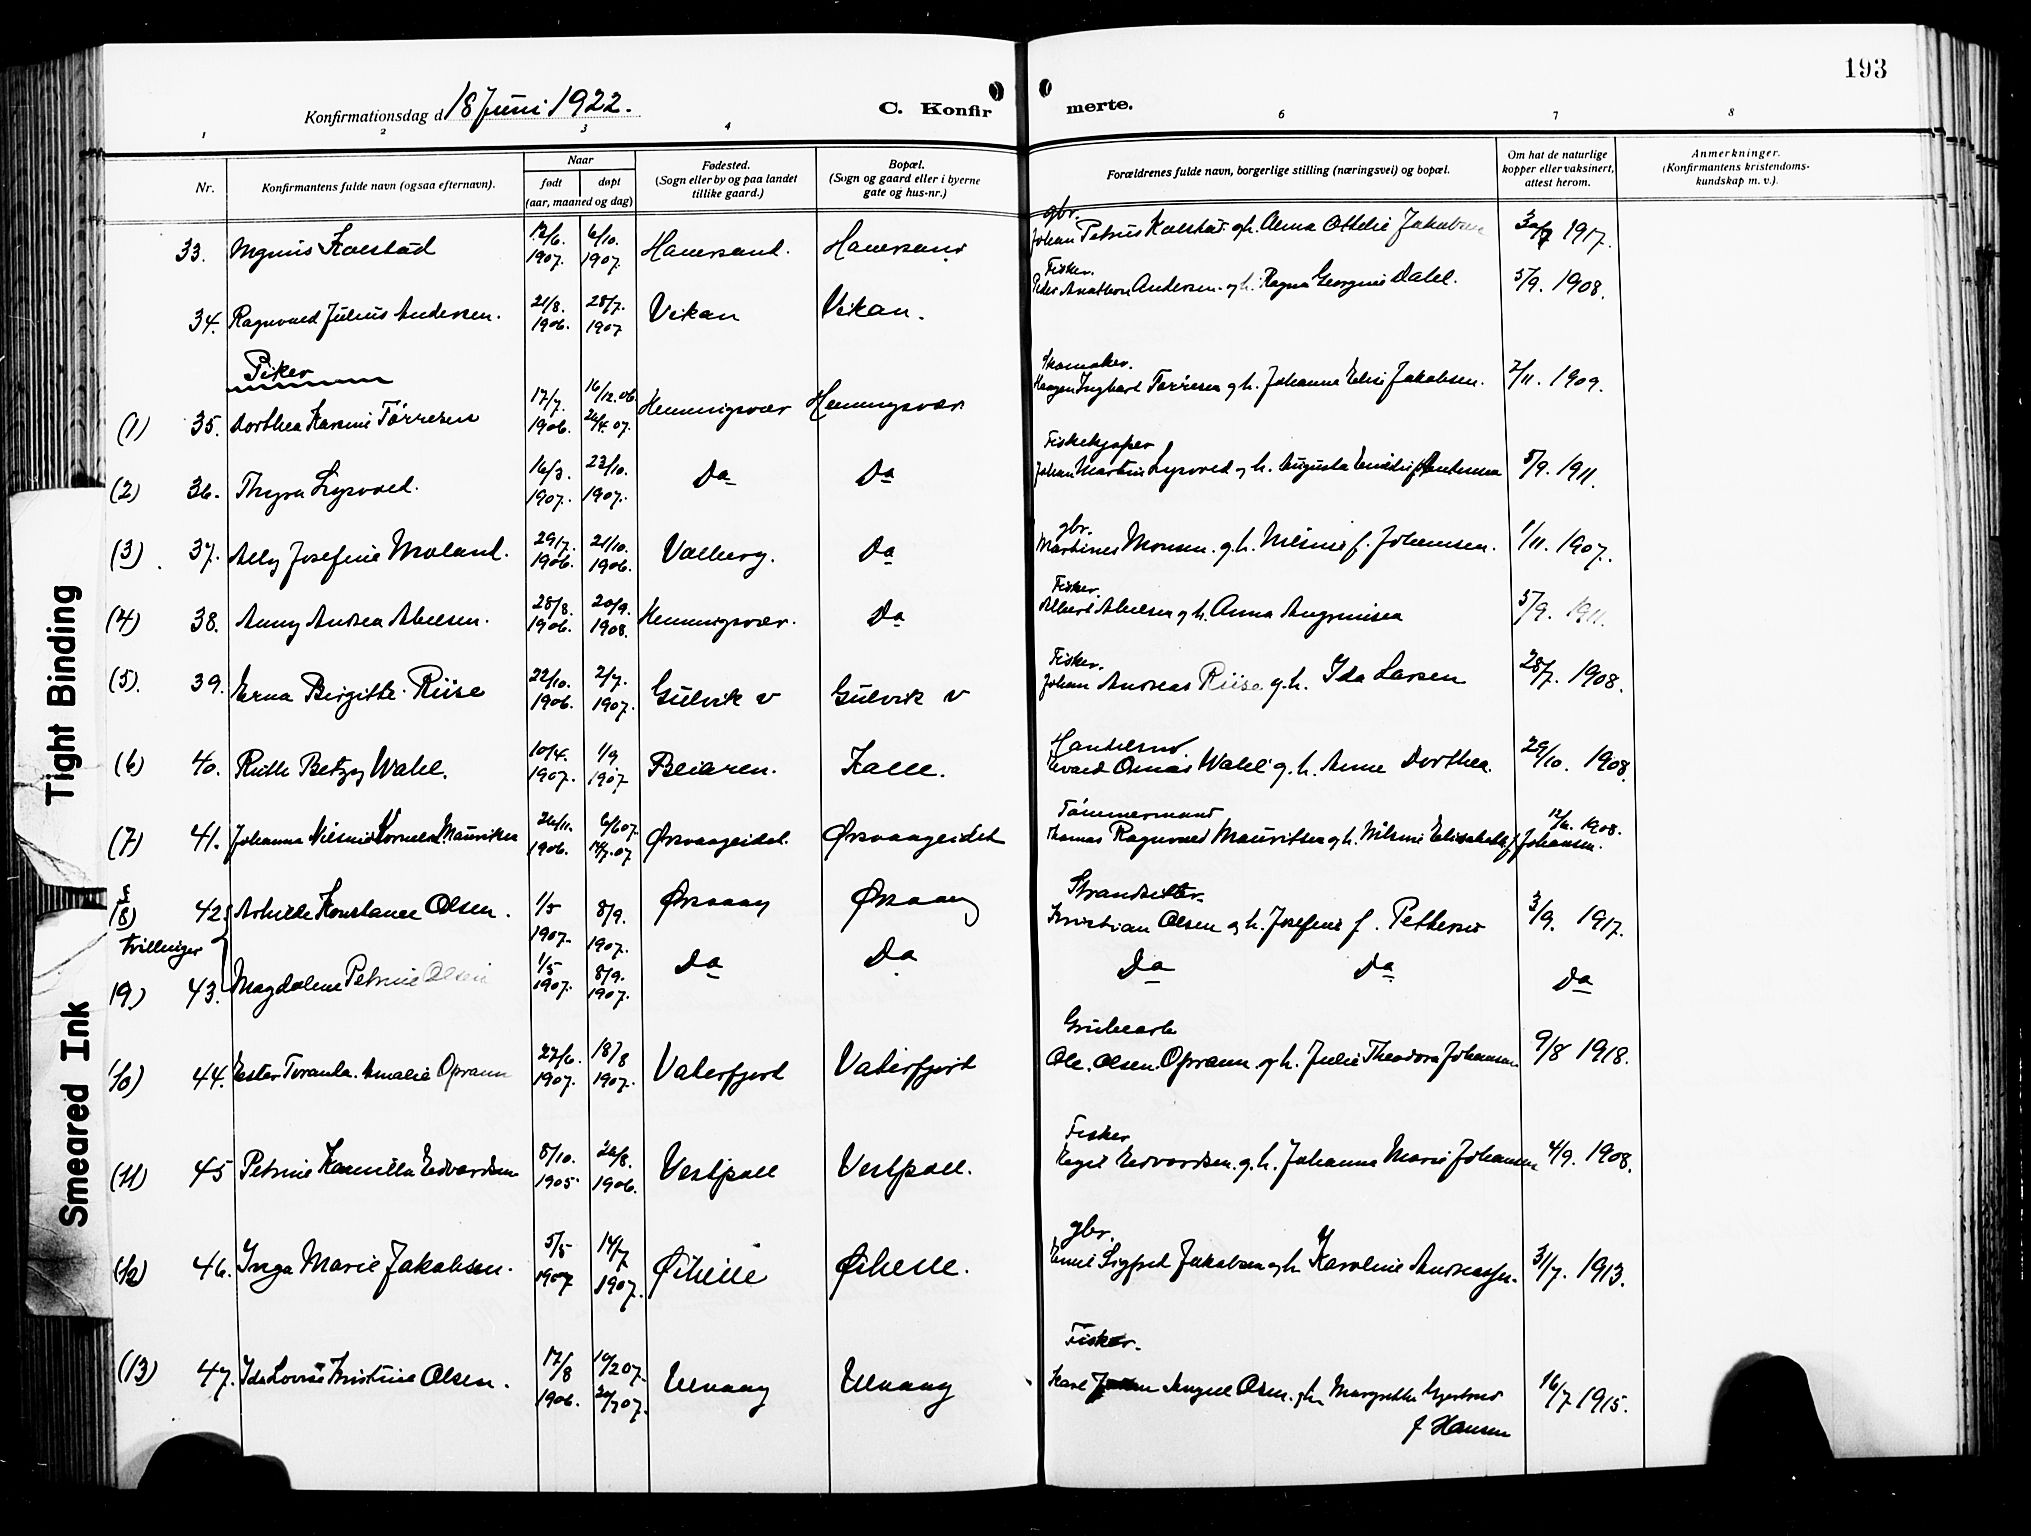 193
Konfirmationsdag d. 18 Juni 1922.
C. Konfirmerte.
1 2 3 4 6 7 8
Nr.
Konfirmantens fulde navn (ogsaa efternavn).
Naar
født døpt
(aar, maaned og dag)
Fødested.
(Sogn eller by og paa landet
tillike gaard.)
Bopæl.
(Sogn og gaard eller i byerne
gate og hus-nr.)
Forældrenes fulde navn, borgerlige stilling (næringsvei) og bopæl.
Om hat de naturlige
kopper eller vaksinert,
attest herom.
Anmerkninger.
(Konfirmantens kristendoms-
kundskap m. v.).
gbr.
33. Magnus Kalstad 12/6. 1907. 6/10. 1907. Johan Petrus Kalstad og h. Anna Othelie Jakobsen 30/7 1917.
Fisker.
34. Ragnvald Julius Andersen. 21/8. 1906. 28/7. 1907 Vikan Vikan. Andersen og h. Ragna Georgine Dahl. 5/9. 1908.
Piker
Skomaker.
(1) 35. Dorthea Karine Tørresen 17/7. 1906. 16/12.06. 26/4.07. Henningsvær Henningsvær Tørresen og h. Johanne Elise Jakobsen. 2/11. 1909.
Fiskekjøper
(2) 36. Thyra Lysvold. 16/3. 1907. 23/10. 1907. Do Do Johan Martin Lysvold og h. Augusta 5/9. 1911.
gbr.
(3) 37. Ally Josefine Moland. 29/7. 1906. 21/10. 1906. Valberg. Do Martines Monsen og h. f. Johansen. 1/11. 1907.
Fisker.
(4) 38. Anny Andrea Abelsen. 28/8. 1906. 20/9. 1908. Henningsvær. Do Albert Abelsen og h. Anna 5/9. 1911.
Fisker.
(5). 39. Erna Birgitte Riise 22/10. 1906. 2/7. 1907. Gulvik v Gulvik v Johan Andreas Riise og h. Ida Larsen 28/7. 1908.
(6) 40. Ruth Betzy Wahl. 10/4. 1907. 1/9. 1907 Beiaren. Kalle. Wahl og h. Anne Dorthea. 29/10. 1908.
Tømmermand
(7) 41. Johanna Nilsine Kornelia Mauritsen 26/11. 1906. 6/6 07. 14/7. 07 Ørsvaageidet. Ørsvaageidet Thomas Ragnvald Mauritsen og h. Nilsine Elisabeth f. Johansen. 12/6. 1908.
Strandsitter
(8) 42. Konstance Olsen. 1/5 1907. 8/9. 1907. Ørsvaag Ørsvaag Kristian Olsen og h. Josefine f. Pettersen 3/9. 1917.
Tvillinger
(9) 43. Magdalene Petrine Olsen 1/5 1907. 8/9. 1907. Do Do Do Do Do
Grubearb
(10) 44. Ester Amalie Opsann 27/6. 1907. 18/8 1907. Vaterfjord Vaterfjord Ole Olsen Opsann og h. Julie Theodora Johansen 9/8 1918.
Fisker
(11) 45 Petrine Kamilla Edvardsen 8/10. 1905 26/8. 1906. Vestpoll Vestpoll. Edvardsen og h. Johanna Marie Johansen 4/9. 1908.
gbr.
(12) 46. Inga Marie Jakobsen. 5/5 1907 14/7 1907. Øihelle Øihelle. Emil Sigfred Jakobsen og h. Karoline Andreassen. 31/7. 1913.
Fisker.
(13) 47. Ida Lovise Kristine Olsen. 17/8 1906. 10/2 07. 20/7 07. Ulvaag Ulvaag Karl Olsen og h. Margrethe 16/7 1915.
f Hansen
Tight Binding
Smeared Ink